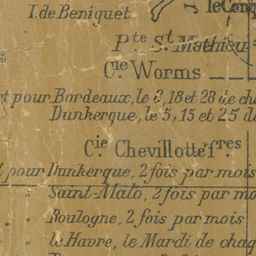 I. de Beniguet
le Conq
Pte St. Mathieu
Cnie Worms
t pour Bordeaux, le 8, 18 et 28 de cha
Dunkerque, le 5, 15 et 25 d
Cie Chevillotte fres
pour Dunkerque, 2 fois par mois
Saint-Malo, 2 fois par mo
Boulogne, 2 fois par mois
le Havre, le Mardi de chaq